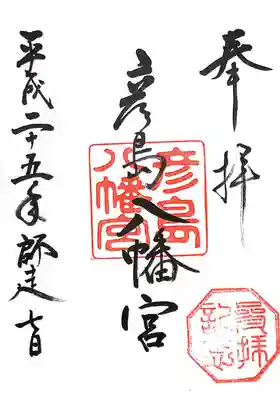 奉拝
彦島八幡宮
彦島八幡宮
参拝記念
平成二十五年師走七日